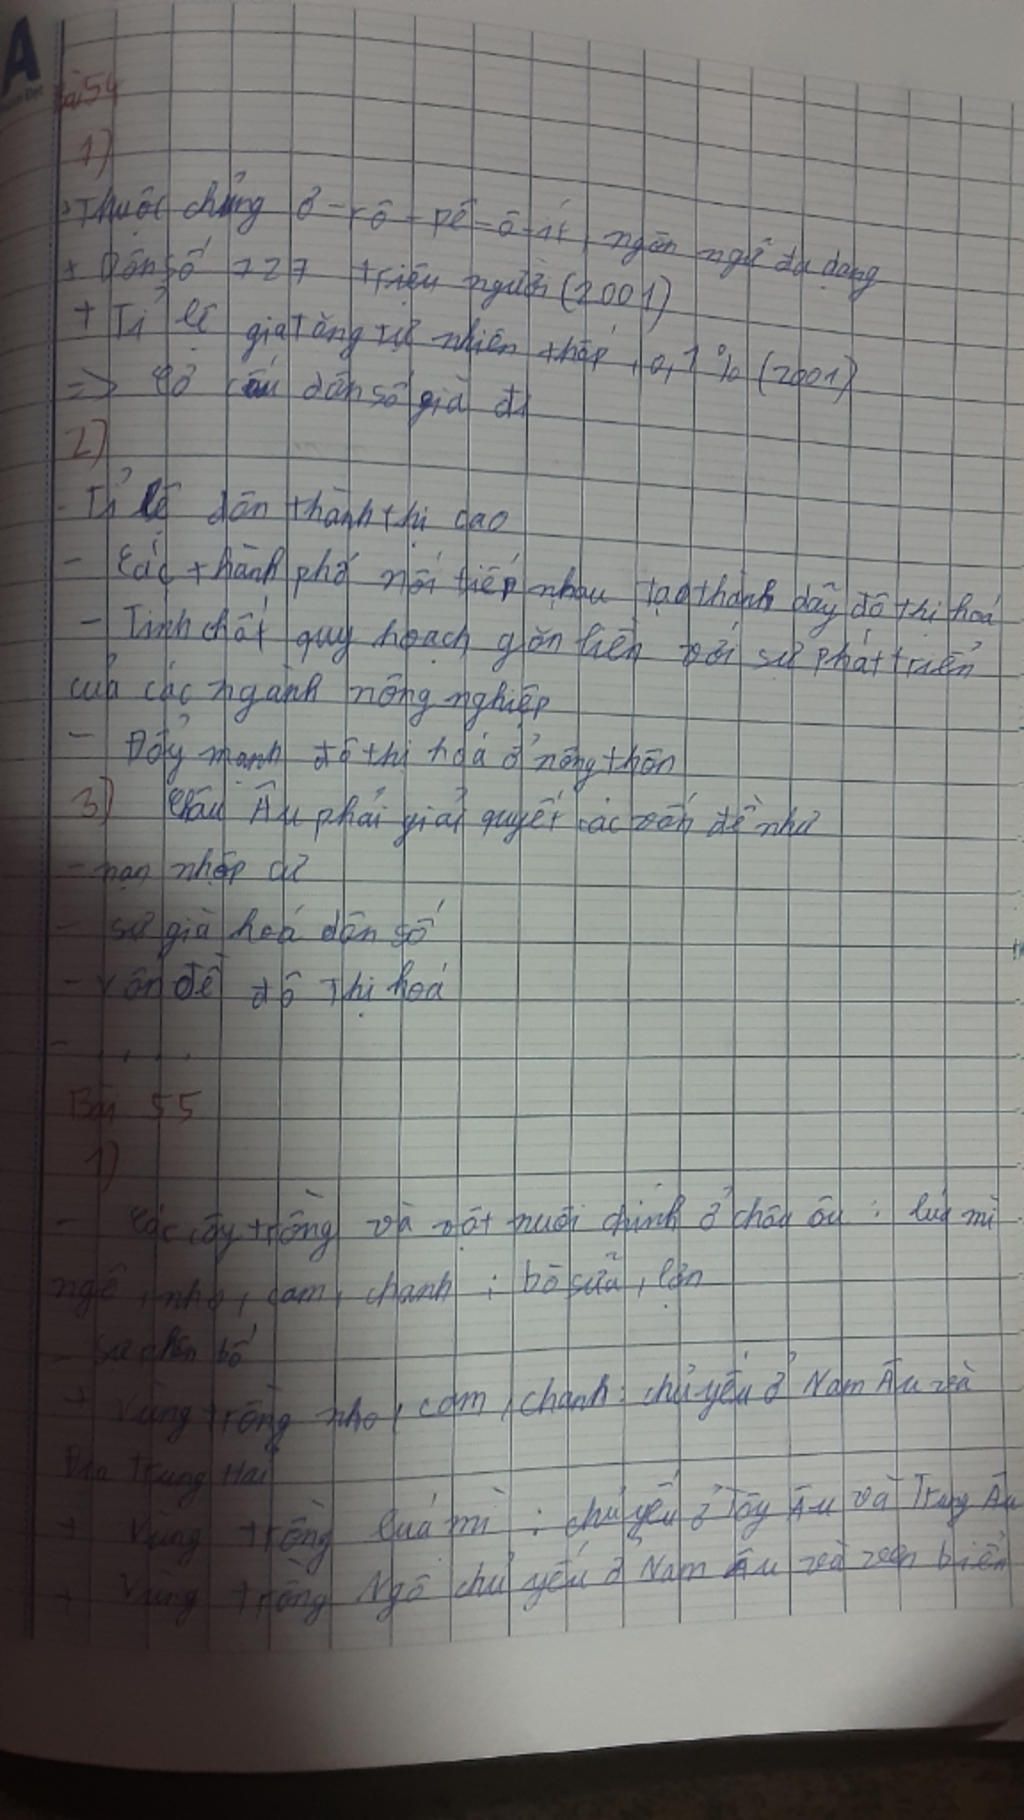 A
Bài 54
1)
+ Thuộc chủng Ơ-rô-pê-ô-it, ngôn ngữ đa dạng
+ Dân số 727 triệu người (2001)
+ Tỉ lệ gia tăng tự nhiên thấp, 0,1% (2001)
=> Cơ cấu dân số già đi
2)
- Tỉ lệ dân thành thị cao
- Các thành phố nối tiếp nhau tạo thành dãy đô thị hoá
- Tính chất quy hoạch gắn liền với sự phát triển
của các ngành nông nghiệp
- Đẩy mạnh đô thị hoá ở nông thôn
3) Châu Âu phải giải quyết các vấn đề như
- nạn nhập cư
- sự già hoá dân số
- vấn đề đô thị hoá
- ....
Bài 55
1)
- Các cây trồng và vật nuôi chính ở châu âu : lúa mì
ngô, nho, cam, chanh ; bò sữa, lợn
- Sự phân bố
+ Vùng trồng nho, cam, chanh : chủ yếu ở Nam Âu và
Địa Trung Hải
+ Vùng trồng lúa mì : chủ yếu ở Tây Âu và Trung Âu
+ Vùng trồng Ngô chủ yếu ở Nam Âu và ven biển